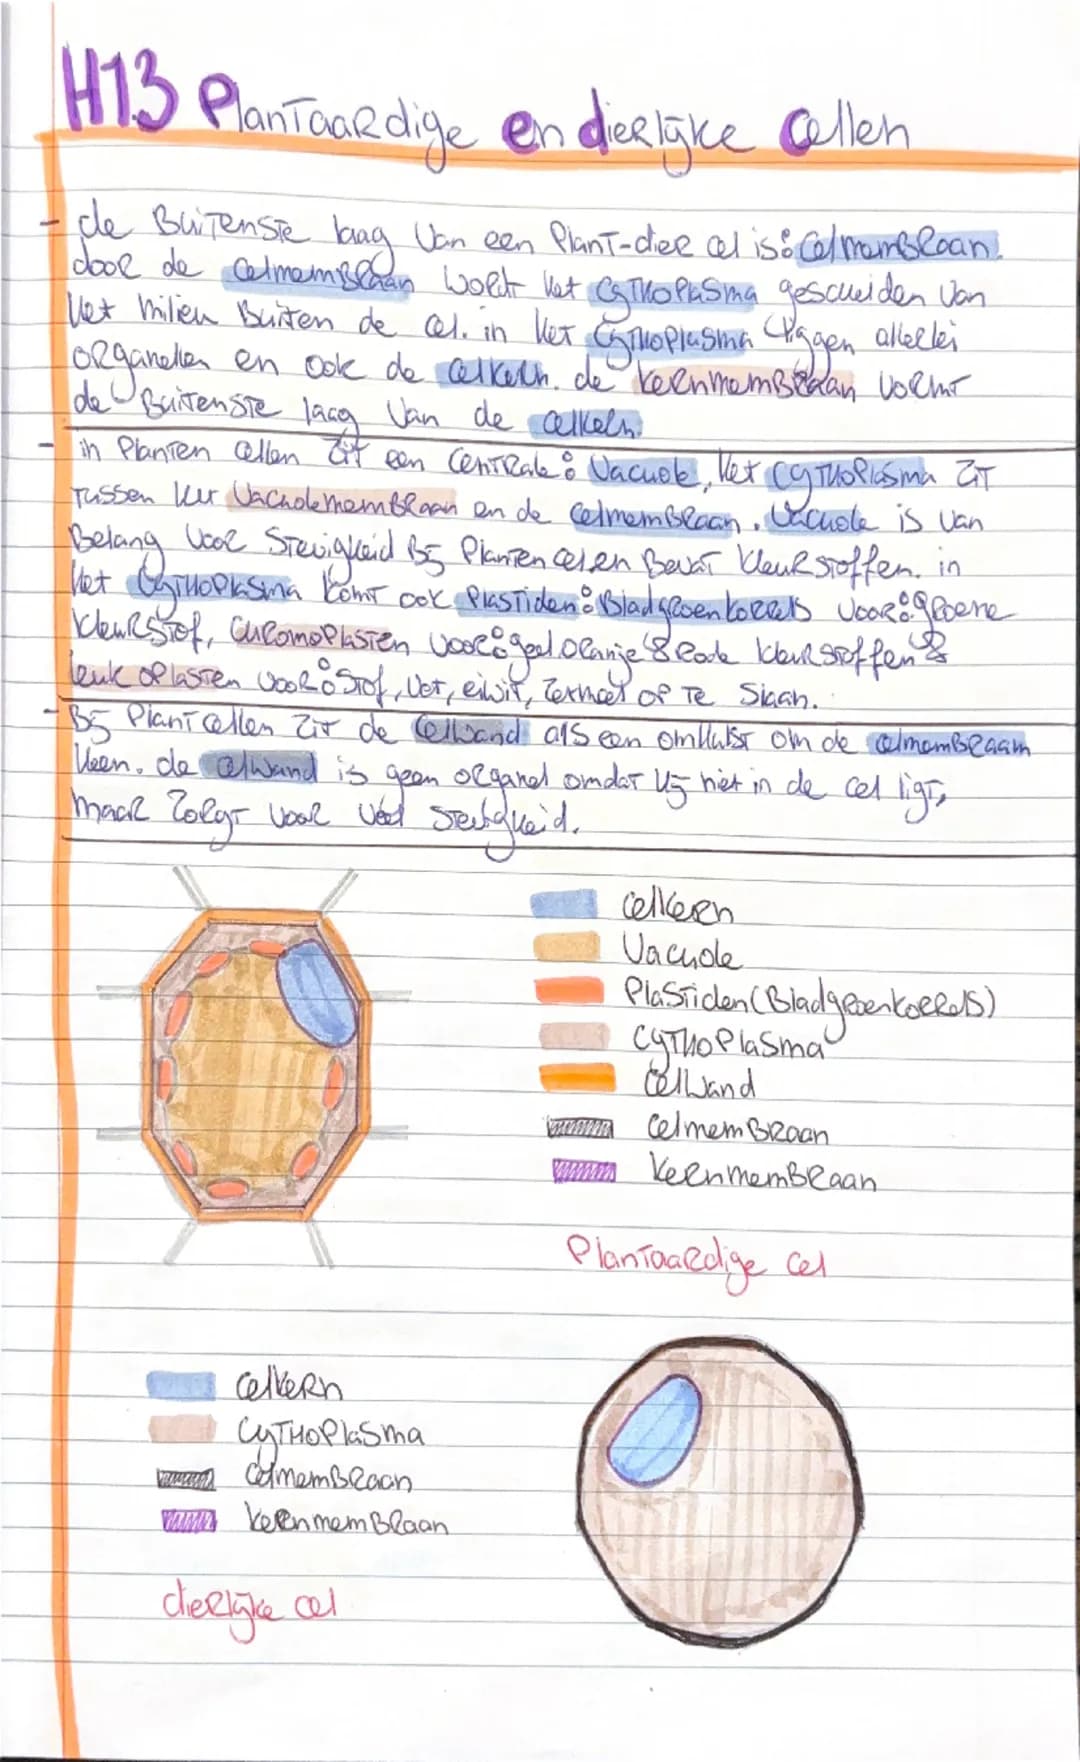 H1.3 Plantaardige en dierlijke cellen
- de Buitenste laag van een Plant-dier cel is: Celmembraan.
door de Celmembraan wordt het CytHoPlasma gescheiden van
het milieu Buiten de cel. in het CytHoPlasma liggen allerlei
organellen en ook de celkern. de kernmembraan vormt
de Buitenste laag van de celkern.
- in Planten cellen zit een centrale: Vacuole, het CytHoPlasma zit
tussen het Vacuolemembraan en de Celmembraan. Vacuole is van
Belang voor Stevigheid Bij Planten cel en Bevat kleurstoffen. in
het CytHoPlasma komt ook Plastiden: Bladgroenkorrels voor: groene
kleurstof, Chromoplasten voor: geel oranje & Rode kleurstoffen &
leukoplasten voor: Stof, Vet, eiwit, Zetmeel op te Slaan.
- Bij Plantcellen zit de Celwand als een omhulsr om de celmembraam
heen. de celwand is geen organel omdat hij niet in de cel ligt,
maar zorgt voor veel stevigheid.
celkern
Vacuole
Plastiden (Bladgroenkorrels)
CytHoPlasma
CelWand
CelmemBraan
kernmemBraan
Plantaardige cel
celkern
CytHoPlasma
CelmemBraan
kernmemBraan
dierlijke cel